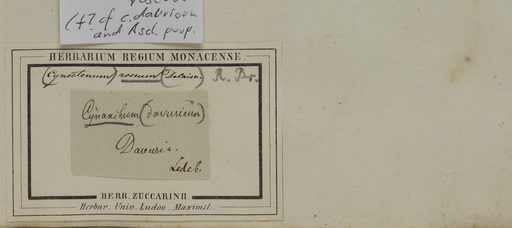 (f? of c. dahuricum
and Asd. purp.
HERBARIUM REGIUM MONACENSE.
(Cynoctonum) roseum R. Br.
Cynanchum (davuricum)
Davuria.
Ledeb.
HERB. ZUCCARINII
Herbar. Univ. Ludov. Maximil.